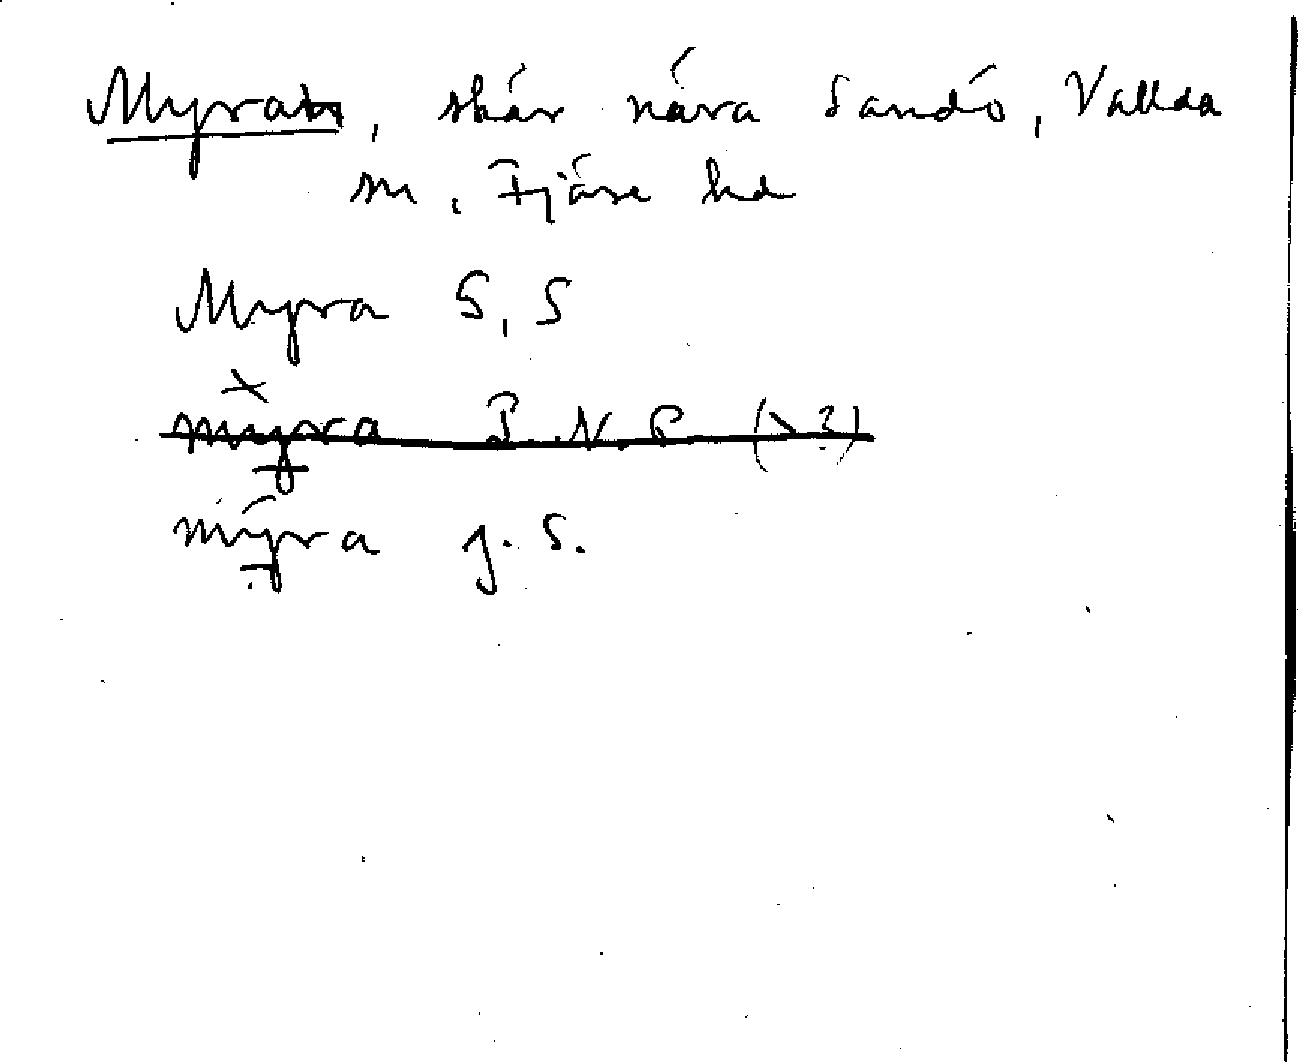 Myran, skär nära Sandö, Vallda
sn, Fjäre hd
Myra S, S
myra P. N. P (>?)
mýra J. S.